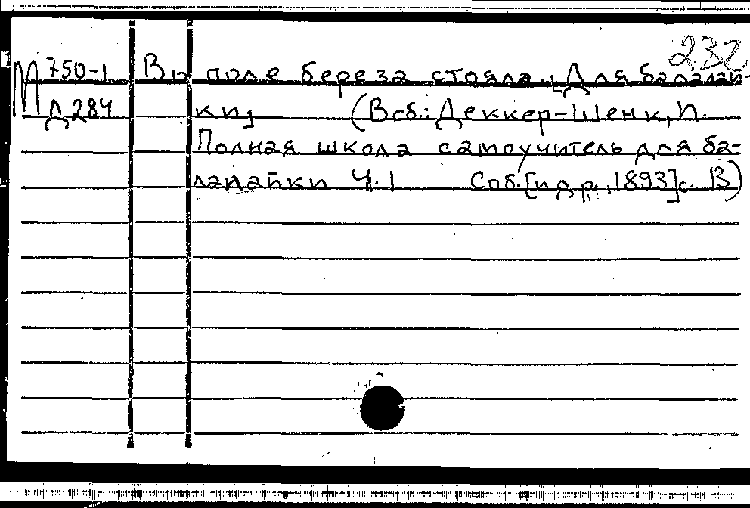 232
М 750-1 Во поле береза стояла. Для балалай-
Д 284 ки; (В сб.: Деккер-Шенк, И.
Полная школа самоучитель для ба-
лалайки Ч. 1 Спб. [и др., 1893] с. 13)